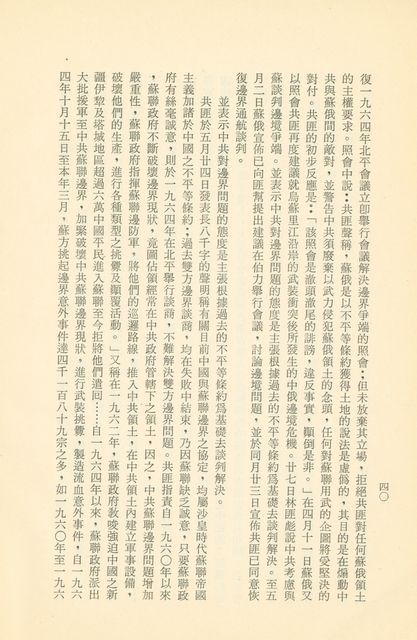 復一九六四年北平會議立卽舉行會議解決邊界爭端的照會：但未放棄其立場，拒絕共匪對任何蘇俄領土
的主權要求。照會中說：共匪聲稱，蘇俄是以不平等條約獲得土地的說法是虛僞的，其目的是在煽動中
共與蘇俄間的敵對，並警告中共須廢棄以武力侵犯蘇俄領土的念頭，任何對蘇聯用武的企圖將受堅決的
對付。共匪的初步反應是：「該照會是澈頭澈尾的誹謗，違反事實，顚倒是非。」在四月十一日蘇俄又
以照會共匪再度建議就烏蘇里江沿岸的武裝衝突後所發生的中俄邊境危機。廿七日林匪彪說中共考慮與
蘇談判邊境爭端。並表示中共對邊界問題的態度是主張根據過去的不平等條約爲基礎去談判解決。至五
月二日蘇俄宣佈已向匪幫提出建議在伯力舉行會議，討論邊境問題，並於同月廿三日宣佈共匪已同意恢
復邊界通航談判。
並表示中共對邊界問題的態度是主張根據過去的不平等條約爲基礎去談判解決。
共匪於五月廿四日發表長八千字的聲明稱有關目前中國與蘇聯邊界之協定，均屬沙皇時代蘇聯帝國
主義加諸於中國之不平等條約：過去雙方邊界談商，均在失敗中結束，乃因蘇聯缺乏誠意，只要蘇聯政
府有絲毫誠意，則於一九六四年在北平舉行談商，不難解決雙方邊界問題。共匪指責自一九六〇年以來
，蘇聯政府不斷破壞邊界現狀，竟圖佔領經常在中共政府管轄下之領土，因之，中共蘇聯邊界問題增加
嚴重性，蘇聯政府指揮蘇聯邊防軍，將他們的巡邏路線，推入中共領土，在中共領土內建立軍事設備，
破壞他們的生產，進行各種類型之挑釁及顚覆活動。」又稱在一九六二年，蘇聯政府敎唆强迫中國之新
疆伊犂及塔城地區超過六萬中國平民進入蘇聯至今拒將他們遣囘……自一九六四年以來，蘇聯政府派出
大批援軍至中共蘇聯邊界，加緊破壞中共蘇聯邊界現狀，進行武裝挑釁，製造流血意外事件，自一九六
四年十月十五日至本年三月，蘇方挑起邊界意外事件達四千一百八十九宗之多，如一九六〇年至一九六
四〇